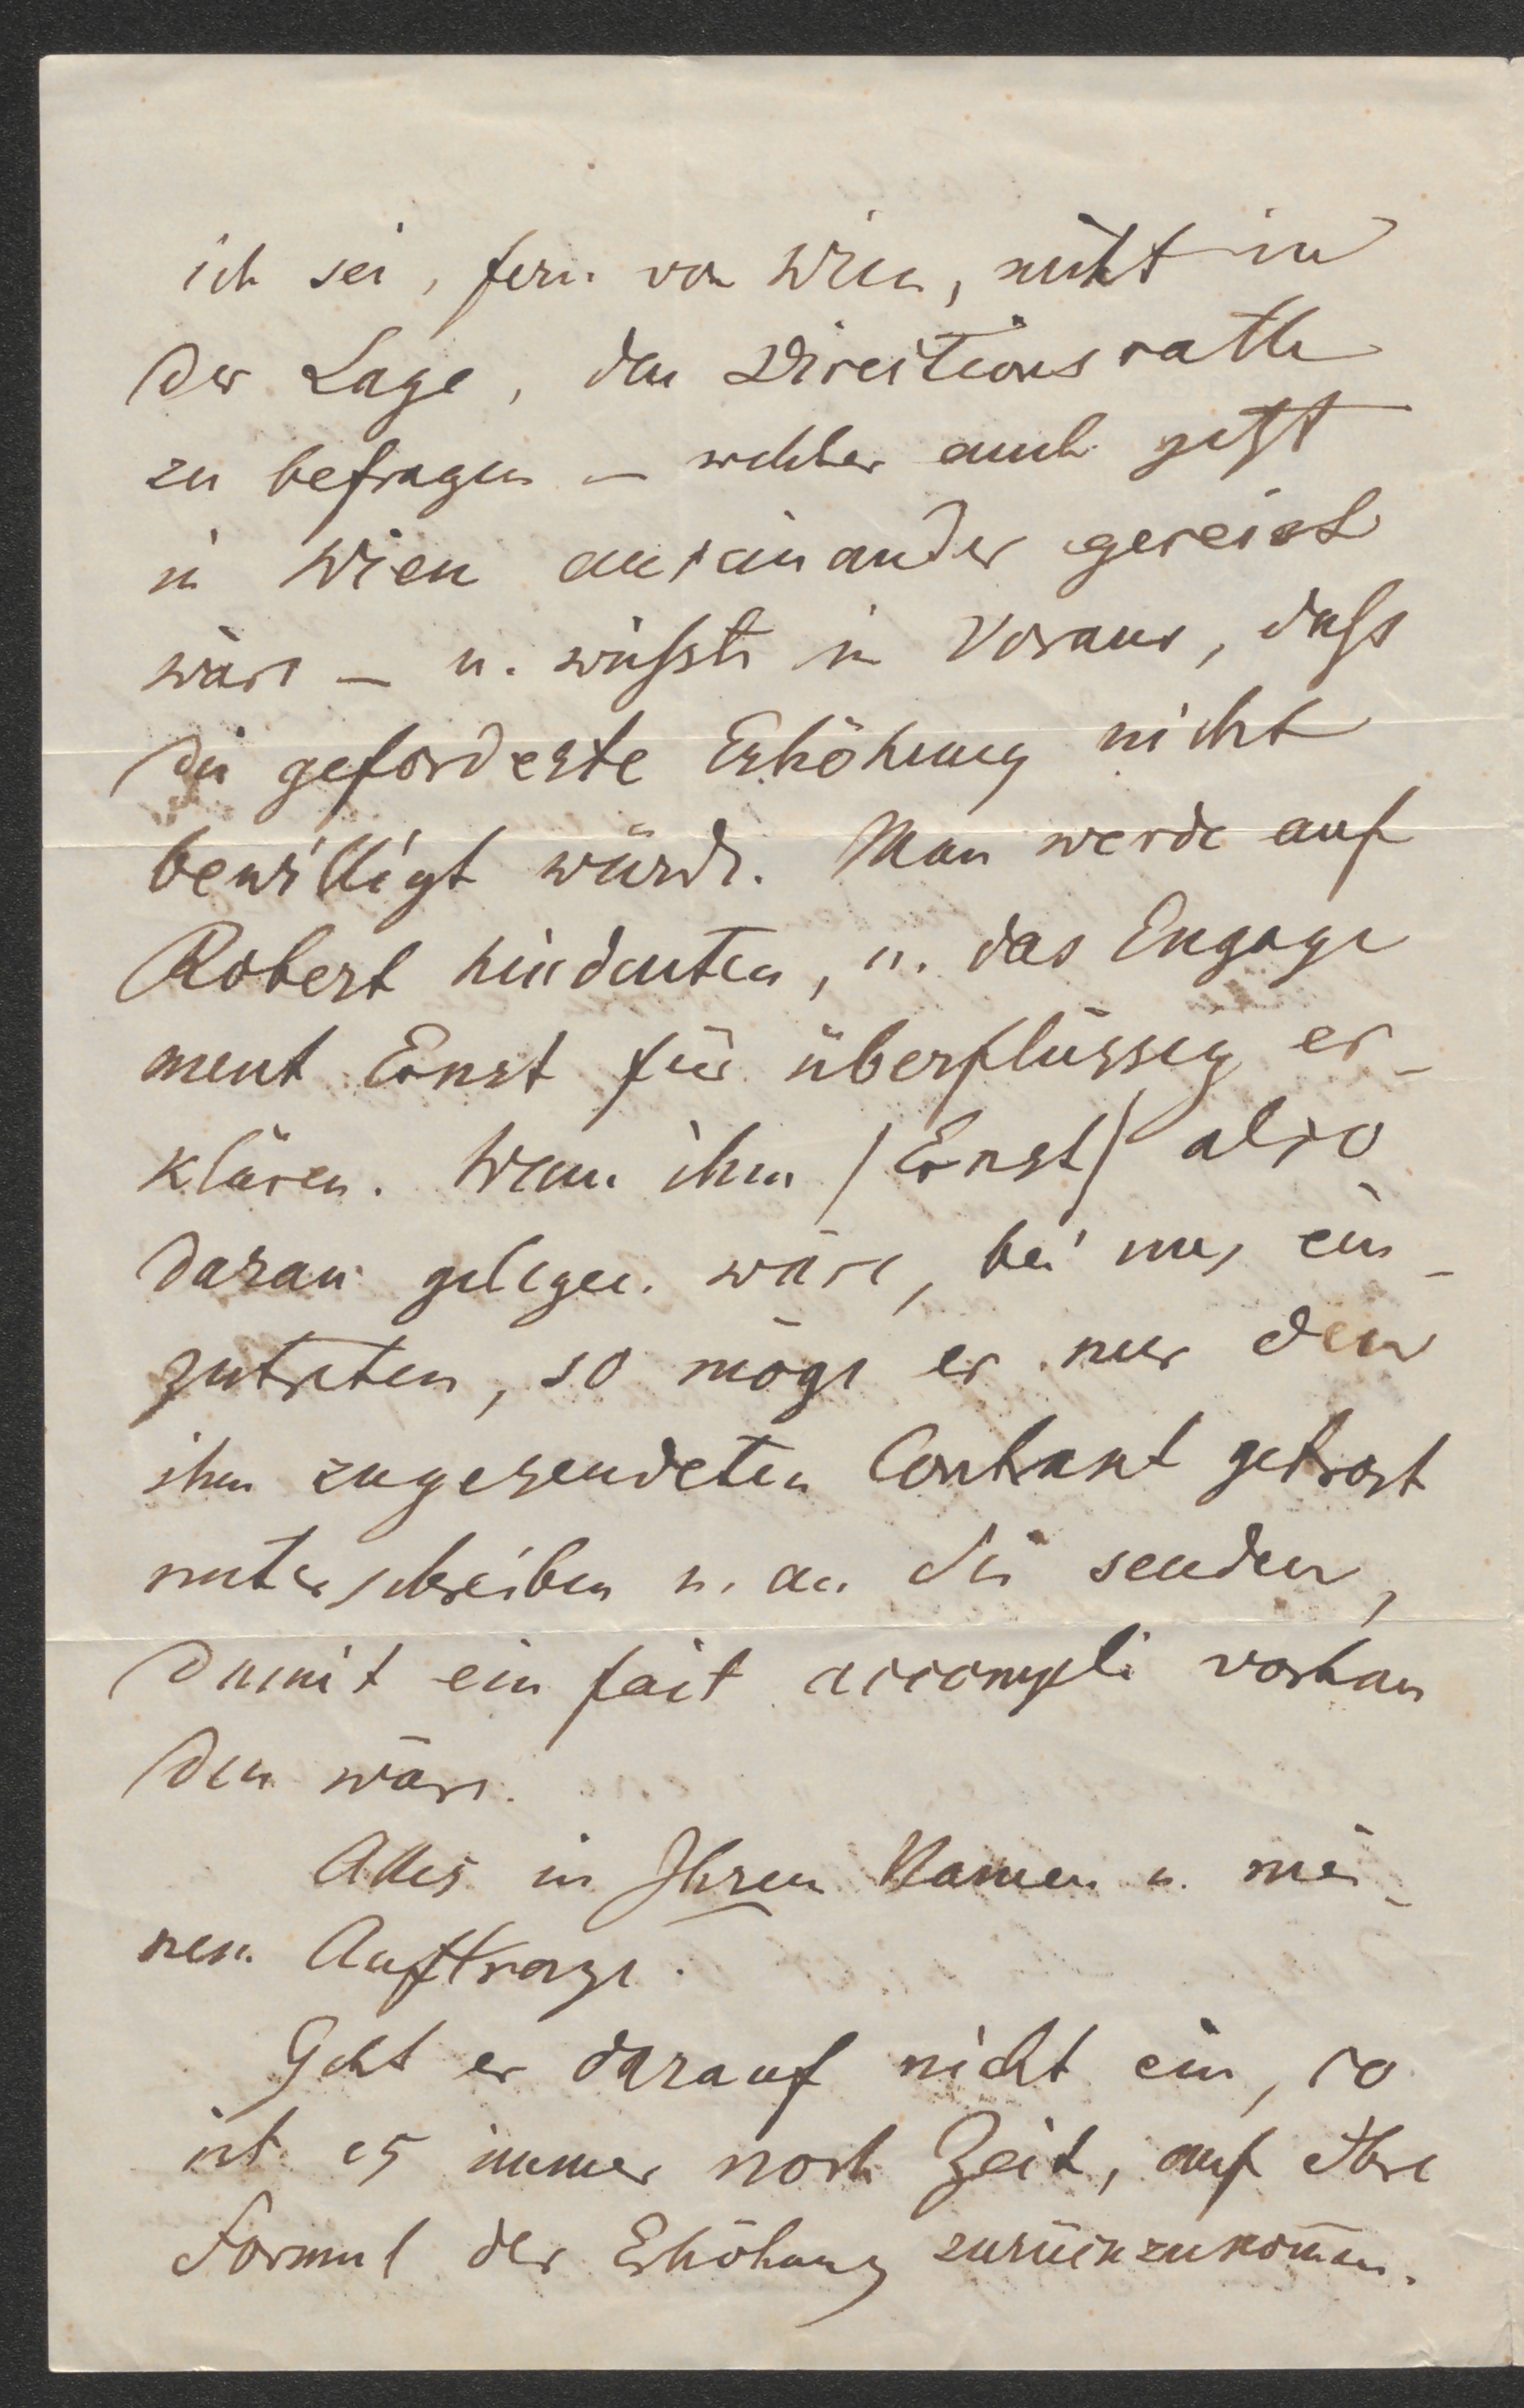 ich sei, fern von Wien, nicht in
der Lage, den Directionsrath
zu befragen – welcher auch jetzt
in Wien auseinander gereist
wäre – u. wüßte im Voraus, daß
die geforderte Erhöhung nicht
bewilligt würde. Man werde auf
Robert hindeuten, u. das Engage
ment Ernst für überflüssig er-
klären. Wenn ihm /Ernst/ also
daran gelegen wäre, bei uns ein-
zutreten, so möge er nur den
ihm zugesendeten Contrakt getrost
unterschreiben u. an Sie senden,
damit ein fait accompli vorhan
den wäre.
Alles in Ihrem Namen u. mei-
nem Auftrage.
Geht er darauf nicht ein, so
ist es immer noch Zeit, auf Ihre
Formel der Erhöhung zurückzukom̄en.